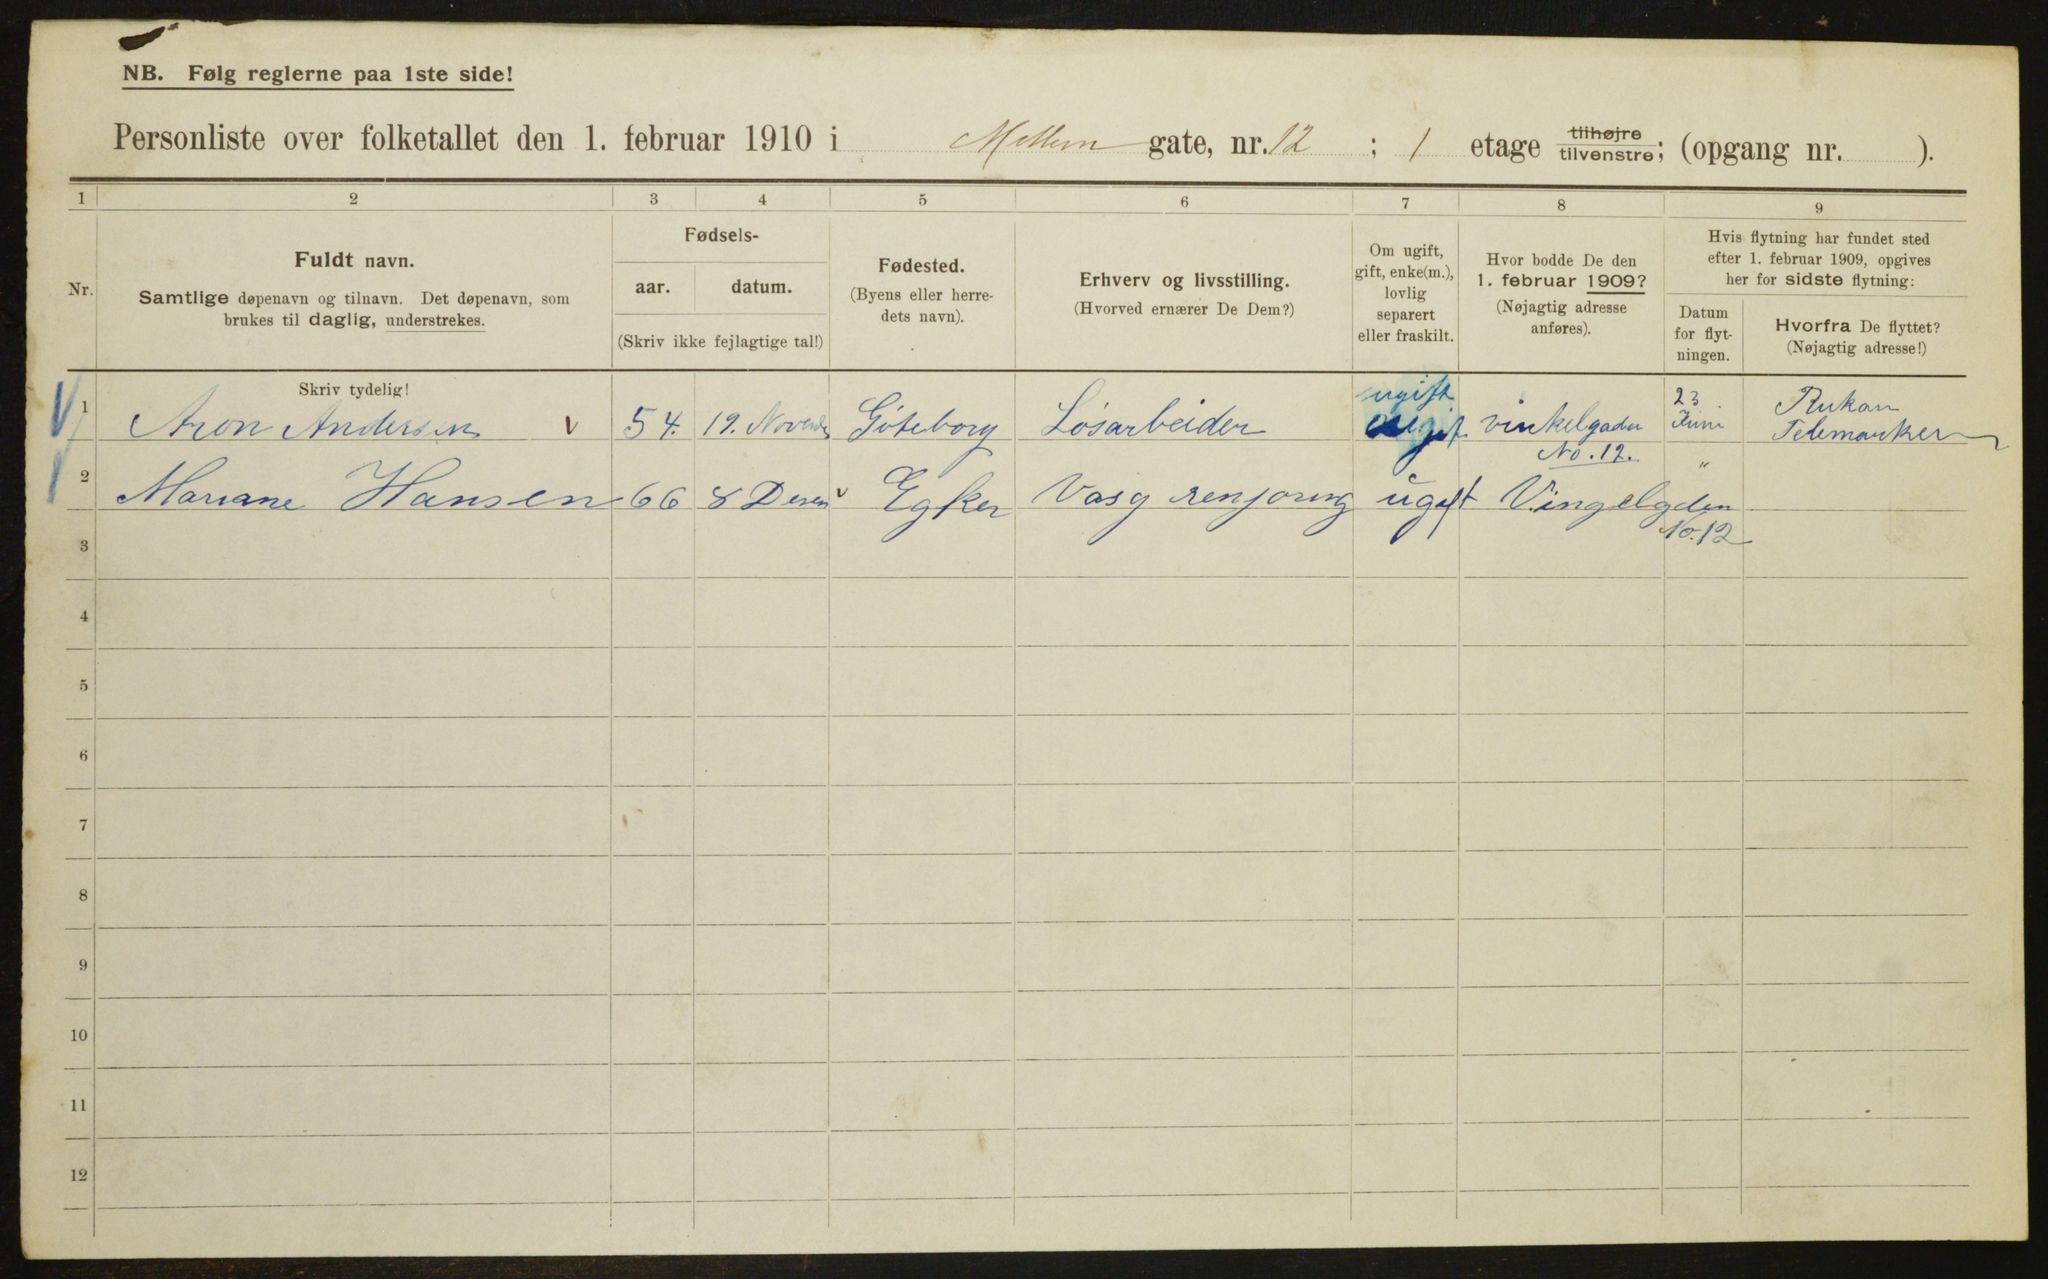 NB. Følg reglerne paa 1ste side!
Personliste over folketallet den 1. februar 1910 i Mellem gate, nr. 12 ; 1 etage tilhøjre tilvenstre; (opgang nr. ).
1 2 3 4 5 6 7 8 9
Nr.
Fuldt navn.
Samtlige døpenavn og tilnavn. Det døpenavn, som
brukes til daglig, understrekes.
Skriv tydelig!
Fødsels-
aar. datum.
(Skriv ikke fejlagtige tal!)
Fødested.
(Byens eller herre-
dets navn).
Erhverv og livsstilling.
(Hvorved ernærer De Dem?)
Om ugift,
gift, enke(m.),
lovlig
separert
eller fraskilt.
Hvor bodde De den
1. februar 1909?
(Nøjagtig adresse
anføres).
Hvis flytning har fundet sted
efter 1. februar 1909, opgives
her for sidste flytning:
Datum
for flyt-
ningen.
Hvorfra De flyttet?
(Nøjagtig adresse!)
1 Aron Andersen v 54. 19. November Göteborg Løsarbeider ugift vinkelgaden No. 12. 23 Juni Rukan Telemarken
2 Mariane Hansen 66 8 Desem v Egker Vasg renjøring ugift Vingelgden No. 12 "
3
4
5
6
7
8
9
10
11
12